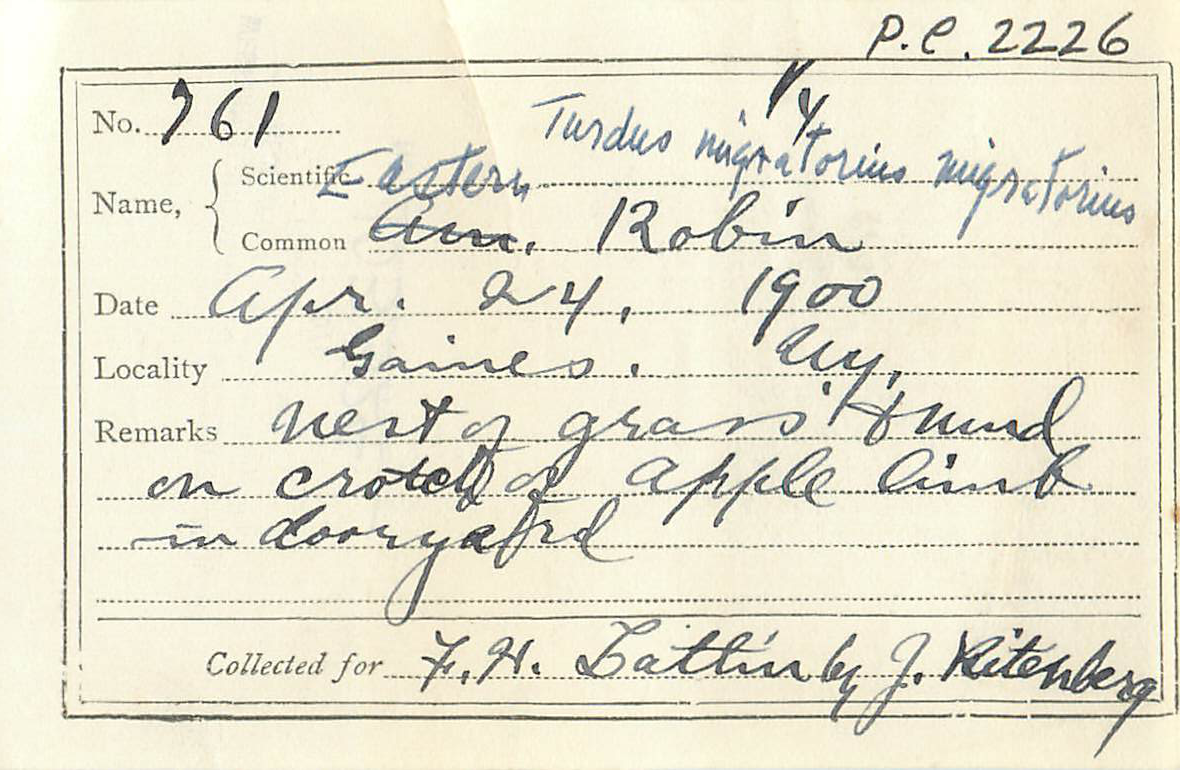 P.C. 2226
No. 761 1/4
Turdus migratorius migratorius
Name, Scientific Eastern
Common Am. Robin
Date Apr. 24, 1900
Locality Gaines. Ny.
Remarks Nest of grass & mud
on crotch of apple limb
in dooryard
Collected for F. H. Lattin by J. Ritenberg